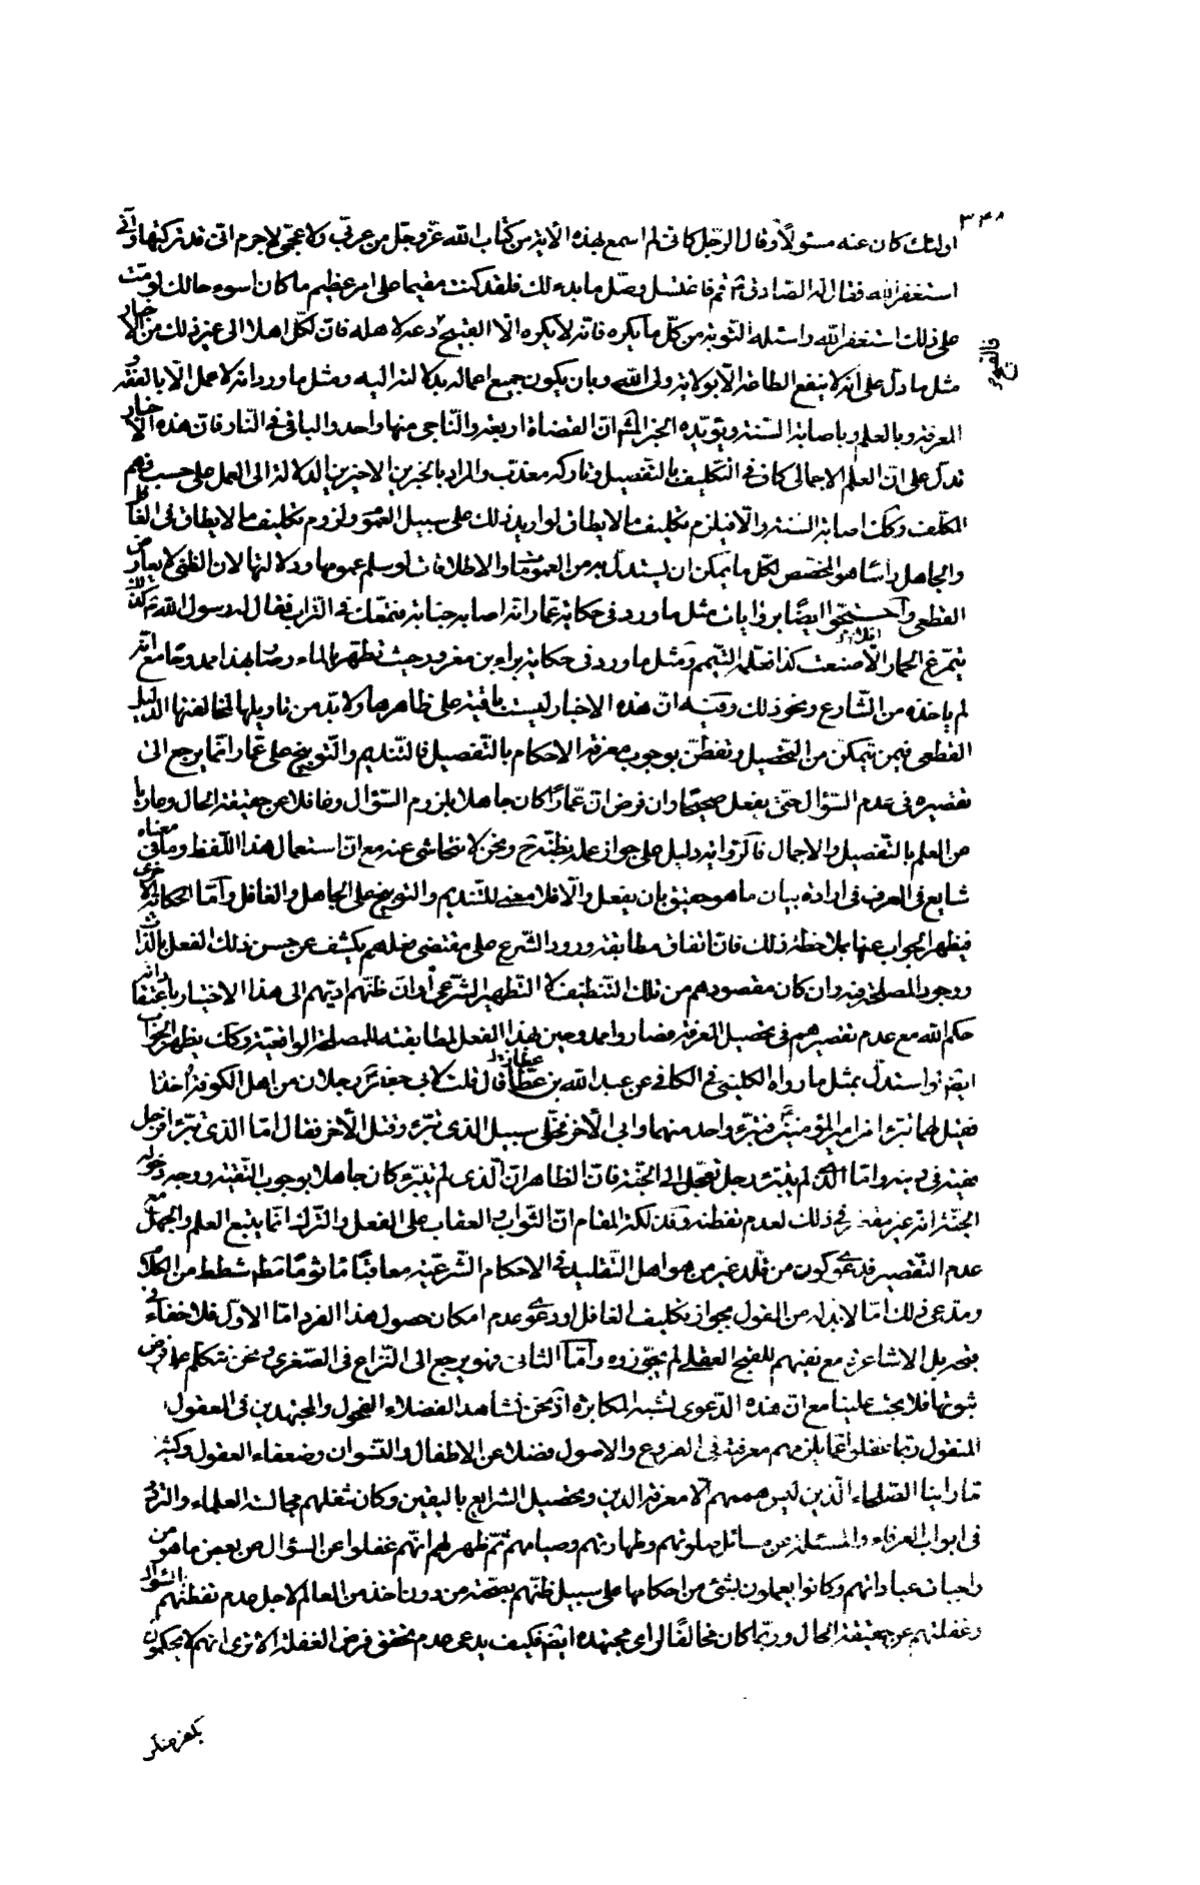 ٣٤٨
اولئك كان عنه مسئولاً وقال الرّجل كانى لم اسمع لهذه الآية من كتاب الله عزّ وجلّ من عربىّ ولا عجمىّ لا جرم انى قد تركتها وانّى
استغفر الله فقال له الصّادق ع قم فاغتسل وصلّ ما بدء لك فلقد كنت مقيما على امر عظيم ما كان اسوء حالك لو متّ
على ذلك استغفر الله واسئله التوبة من كلّ ما يكره فانّه لا يكره الّا القبيح والقبيح دعه لاهله فانّ لكلّ اهلا الى غير ذلك من الاخبار
مثل ما دلّ على انّه لا ينفع الطاعة الّا بولاية ولى الله وبان يكون جميع اعماله بدلالته اليه ومثل ما ورد انّه لا عمل الّا بالفقه و
المعرفة وبالعلم وباصابة السّنة ويؤيّده الخبر المش انّ القضاة اربعة والنّاجى منها واحد والباقى فى النّار فانّ هذه الاخبار
تدلّ على انّ العلم الاجمالى كاف فى التّكليف بالتّفصيل وتاركه معذّب والمراد بالخبرين الاخيرين الدلالة الى العمل على حسب فهم
المكلّف وكك اصابة السّنة والّا فيلزم تكليف ما لا يطاق لو اريد ذلك على سبيل العموم ولزوم تكليف ما لا يطاق فى الغافل
والجاهل راسا هو المخصّص لكلّ ما يمكن ان يستدلّ به من العمومات والاطلاقات لو سلم عمومها ودلالتها لان الظنّى لا يعارض
القطعى واحتجّوا ايضًا بروايات مثل ما ورد فى حكاية عمّار انّه اصابه جنابة فتمعّك فى التراب فقال له رسول الله ص كذلك
يتمرّغ الحمار افلا صنعت كذا فعلّمه التيمم ومثل ما ورد فى حكاية براء بن معرور حيث تطهّر بالماء وصار بهذا ممدوحًا مع انّه
لم ياخذه من الشّارع ونحو ذلك وفيه انّ هذه الاخبار ليست باقية على ظاهرها ولا بدّ من تاويلها لمخالفتها الدليل
القطعى فيمن يتمكّن من التّحصيل وتفطّن بوجوب معرفة الاحكام بالتّفصيل فالتّنديم والتّوبيخ على عمّار انّما يرجع الى
تقصيره فى عدم السّؤال حتّى يفعل صحيحًا وان فرض انّ عمّارًا كان جاهلا بلزوم السّؤال وغافلا عن حقيقة الحال وعاريا
من العلم بالتّفصيل والاجمال فالرّواية دليل على جواز عمله بظنّه ح ونحن لا نتحاشى عنه مع انّ استعمال هذا اللّفظ وما فى معناه
شايع فى العرف فى ارادة بيان ما هو حقيق بان يفعل والّا فلا معنى للتّنديم والتوبيخ على الجاهل والغافل وامّا الحكاية الاخرى
فيظهر الجواب عنها بملاحظة ذلك فانّ اتفاق مطابقة ورود الشّرع على مقتضى فعلهم يكشف عن حسن ذلك الفعل بالذّات
ووجود المصلحة فيه وان كان مقصودهم من تلك التّنظيف لا التّطهير الشّرعى او انّ ظنّهم ادّيهم الى هذا الاختيار باعتقاد انّه
حكم الله مع عدم تقصيرهم فى تحصيل المعرفة فصاروا ممدوحين بهذا الفعل لمطابقته للمصلحة الواقعية وكك يظهر الجواب
ايضا لو استدلّ بمثل ما رواه الكلينى فى الكافى عن عبد الله بن عطا قال قلت لابى جعفر ع رجلان من اهل الكوفة اُخذا
فقيل لهما تبرّءا من امير المؤمنين ع فتبرّء واحد منهما وابى الآخر فخلّى سبيل الذى تبرّء وقتل الآخر فقال امّا الذى تبرّء فرجل
فقيه فى دينه وامّا الّذى لم يتبرّء رجل تعجّل الى الجنّة فانّ الظاهر انّ الّذى لم يتبرّء كان جاهلا بوجوب التّقيّة ووجه دخوله
الجنّة انّه غير مقصّر فى ذلك لعدم تفطّنه وفذلكة المقام انّ الثواب والعقاب على الفعل والتّرك انّما يتبع العلم والجهل مع
عدم التّقصير فدعوى كون من قلّد غير من هو اهل التّقليد فى الاحكام الشّرعيّة معاقبًا ماثومًا مط شطط من الكلام
ومدّعى ذلك امّا لا بدّ له من القول بجواز تكليف الغافل او دعوى عدم امكان حصول هذا الفرد امّا الاوّل فلا خفاء فى
بل الاشاعرة مع نفيهم للقبح العقلى لم يجوّزوه وامّا الثانى فهو يرجع الى النّزاع فى الصّغرى ونحن نتكلّم على فرض
ثبوتها فلا بحث علينا مع انّ هذه الدّعوى تشبه المكابرة اذ نحن نشاهد الفضلاء الفحول والمجتهدين فى المعقول
المنقول ربّما غفلوا عمّا يلزمهم معرفته فى الفروع والاصول فضلا عن الاطفال والنّسوان وضعفاء العقول وكثيرا
مّا راينا الصّلحاء الّذين ليس همّهم الّا معرفة الدين وتحصيل الشرايع باليقين وكان شغلهم مجالسة العلماء والتردّد
فى ابواب العرفاء والمسئلة عن مسائل صلوتهم وطهارتهم وصيامهم ثمّ ظهر لهم انّهم غفلوا عن السؤال عن بعض ما هو من
واجبات عباداتهم وكانوا يعملون بشئ من احكامها على سبيل ظنّهم بصحّته من دون اخذ من العالم لاجل عدم تفطّنهم السؤال
وغفلتهم عن حقيقة الحال وربّما كان مخالفًا لراى مجتهده ايضا فكيف يدعى عدم تحقق فرض الغفلة الا ترى انهم لا يحكمون
بكفر منكر